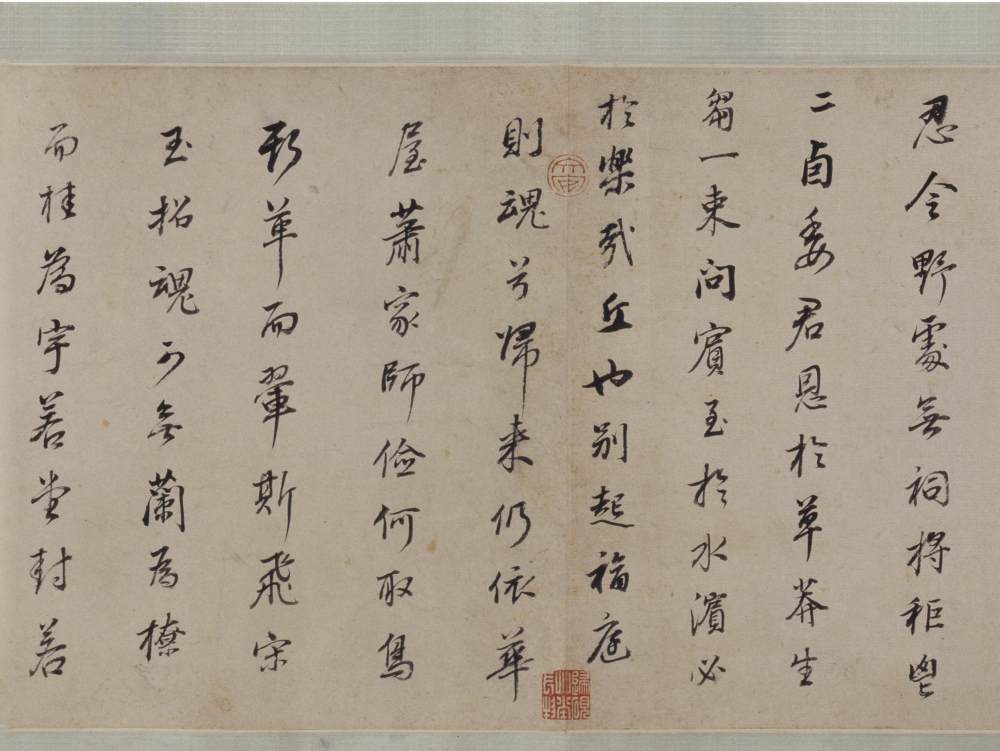 忍令野處無祠將秬鬯
二卣委君恩於草莽生
芻一束問賓至於水濱必
於樂哉丘也別起福庭
則魂兮歸來仍依華
屋蕭家師儉何取鳥
革而翬斯飛宋
玉招魂可無蘭為橑
而桂為宇若堂封若